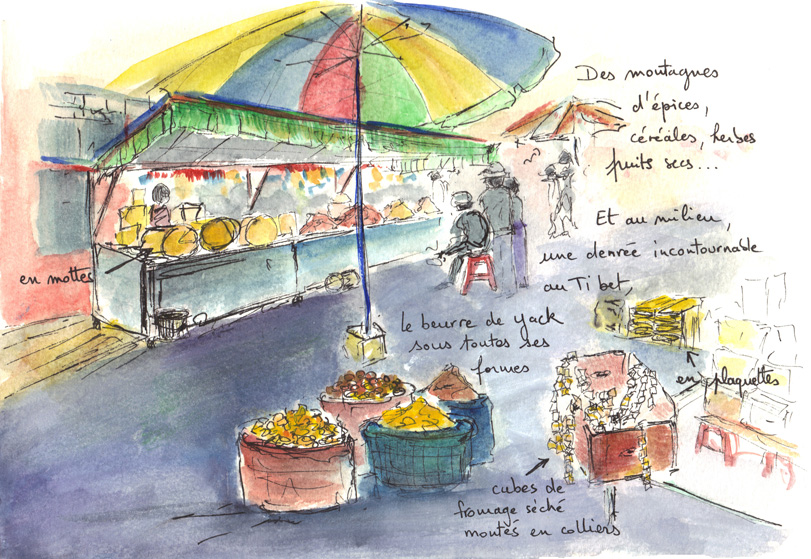 Des montagnes
d'épices,
céréales, herbes
fruits secs...
Et au milieu,
une denrée incontournable
au Tibet,
le beurre de yack
sous toutes ses
formes
en mottes
en plaquettes
cubes de
fromage séché
montés en colliers